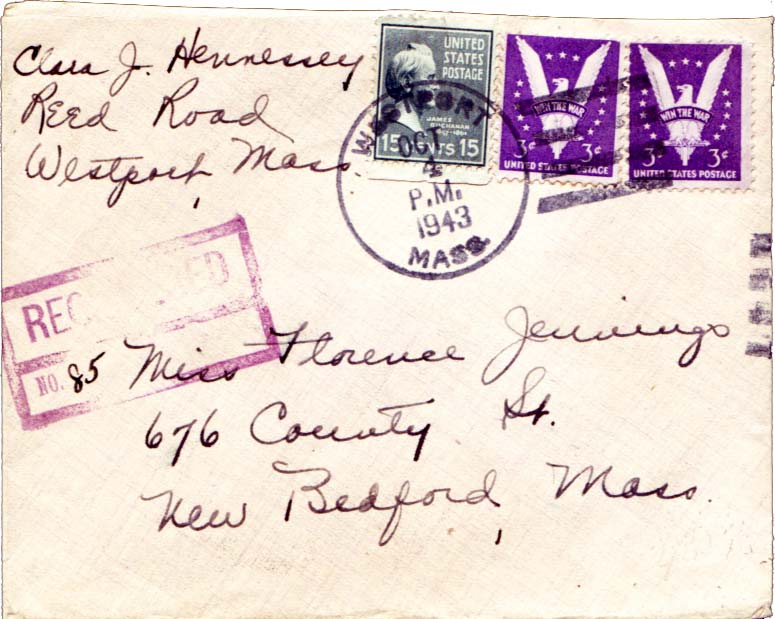 Clara J. Hennessey
Reed Road
Westport, Mass.
UNITED
STATES
POSTAGE
JAMES
BUCHANAN
15 CENTS 15
WIN THE WAR
3¢ 3¢
UNITED STATES POSTAGE
WIN THE WAR
3¢ 3¢
UNITED STATES POSTAGE
WESTPORT
OCT
4
P.M.
1943
MASS.
REGISTERED
NO. 85
Miss Florence Jennings
676 County St.
New Bedford, Mass.